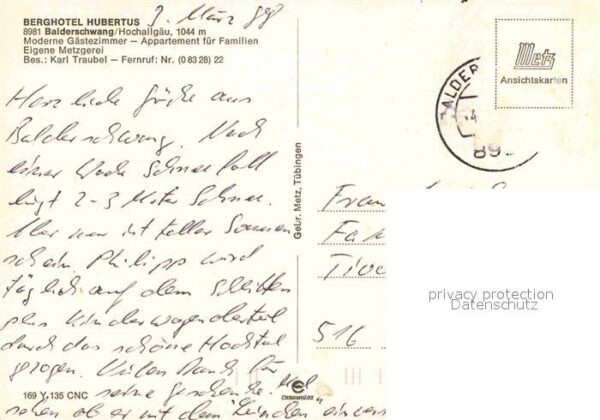 3. März 88
BERGHOTEL HUBERTUS
8981 Balderschwang/Hochallgäu, 1044 m
Moderne Gästezimmer — Appartement für Familien
Eigene Metzgerei
Bes.: Karl Traubel — Fernruf: Nr. (0 83 28) 22
Herzliche Grüße aus
Balderschwang. Nach
einer Woche Schneefall
liegt 2-3 Meter Schnee.
Aber nun ist toller Sonnen
schein. Philipp wird
täglich auf dem Schlitten
plus Kinderwagenoberteil
durch das schöne Hochtal
gezogen. Vielen Dank für
seine Geschenke. Mal
sehen ob er mit dem
169 Y 135 CNC
Gebr. Metz, Tübingen
Metz
Ansichtskarten
BALDER
4
89
Fran
Fa
Tivo
516
privacy protection
Datenschutz